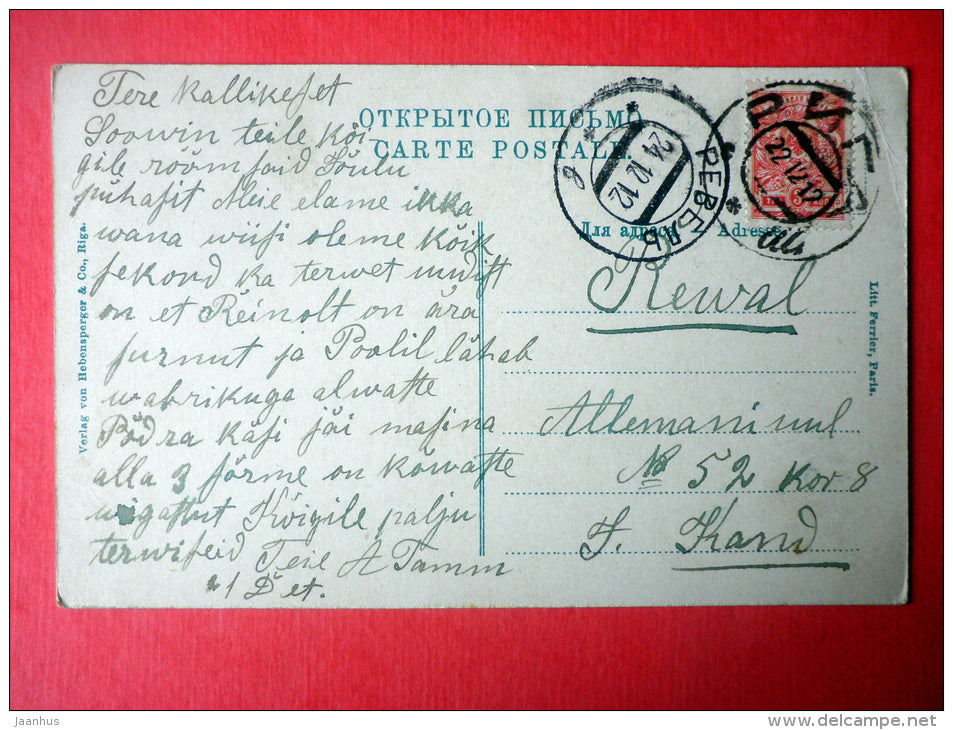 Tere kallikesset
Soowin teile kõi
gile rõõmsaid Jõulu
pühasit Meie elame ikka
wana wiisi oleme kõik
sekord ka terwet uudist
on et Reinolt on ära
surnut ja Poolil lähab
wabrikuga alwaste
Põdra käsi jäi masina
alla 3 sõrme on kõwaste
wigastut Kõigile palju
terwiseid Teie A Tamm
1 Det.
ОТКРЫТОЕ ПИСЬМО
CARTE POSTALE
Для адреса
Adresse
РЕВЕЛЬ
24.12.12
22.12.12
Rewal
Allemani uul
№ 52 Kor 8
J. Kand
Verlag von Hebensperger & Co., Riga.
Litt. Ferrier, Paris.
Jaanhus
www.delcampe.net